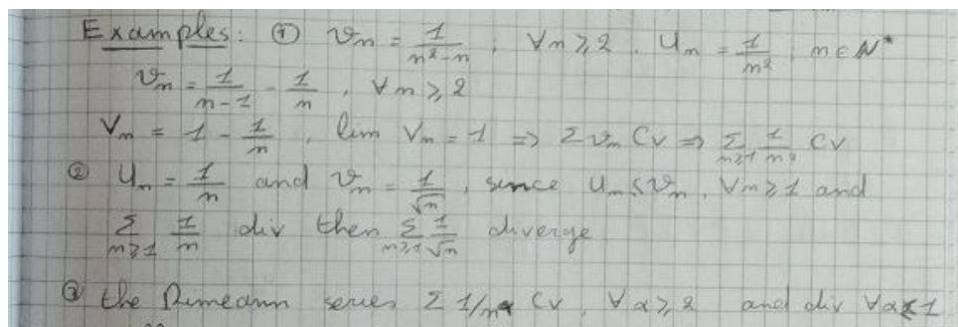 Examples: ① vn = 1/(n²-n) ; ∀n ≥ 2 . Un = 1/n² , n ∈ N*
vn = 1/(n-1) - 1/n , ∀n ≥ 2
Vn = 1 - 1/n , lim Vn = 1 => Σ vn Cv => Σ n≥1 1/n² Cv
② Un = 1/n and vn = 1/√n , since Un ≤ vn , ∀n ≥ 1 and
Σ n≥1 1/n div then Σ n≥1 1/√n diverge
③ the Rimeann series Σ 1/n^α Cv , ∀α ≥ 2 and div ∀α ≤ 1